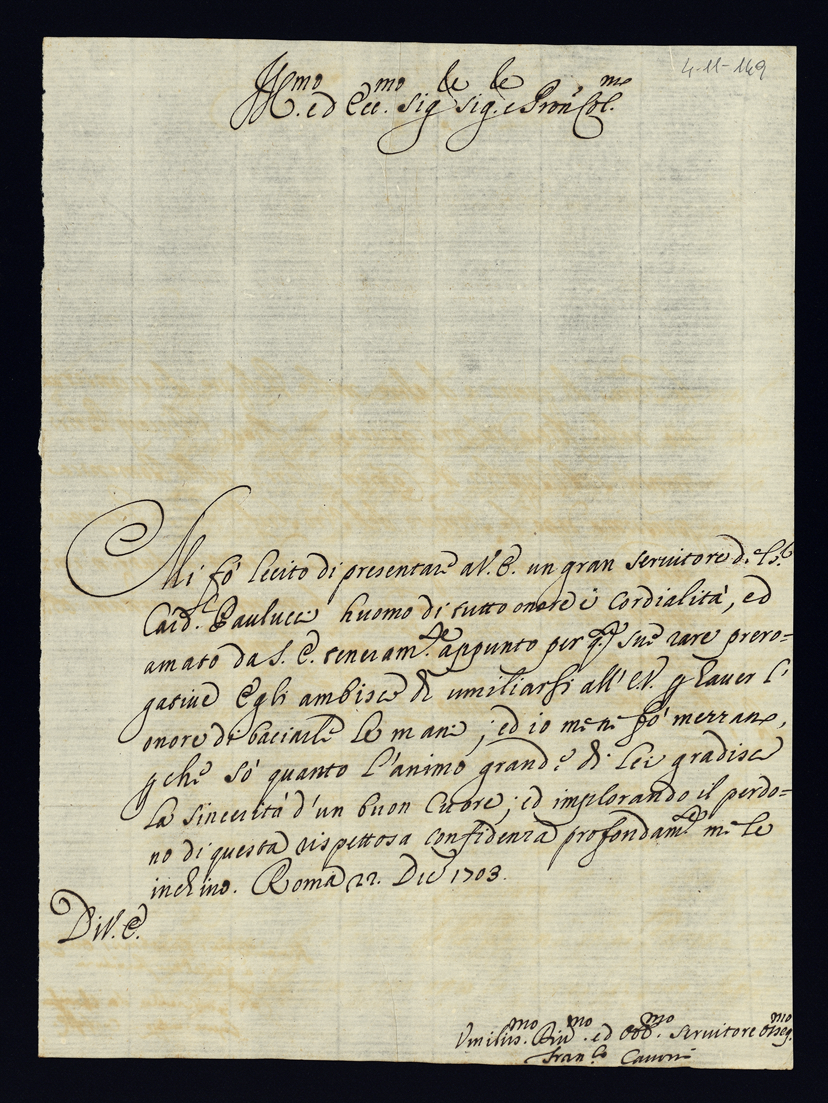 4-11-149
Ill.mo ed Ecc.mo Sig.le Sig.le e Pron Col.mo
Mi fò lecito di presentare a V. E. un gran servitore d.
Card.l Paulucci huomo di tutto onore è cordialità, ed
amato da S. E. teneram.te appunto per q. sue rare prero=
gative Egli ambisce di umiliarsi all' E.V. p haver l'
onore di baciarle le mani; ed io me ne fò mezzano,
p che sò quanto l'animo grande di Lei gradisce
la sincerità d'un buon Cuore; ed implorando il perdo=
no di questa rispettosa confidenza profondam.te me le
inchino. Roma 22. Dic 1703.
Di V. E.
Umilis.mo Div.mo ed Obb.mo Servitore Osseq.mo
Fran.co